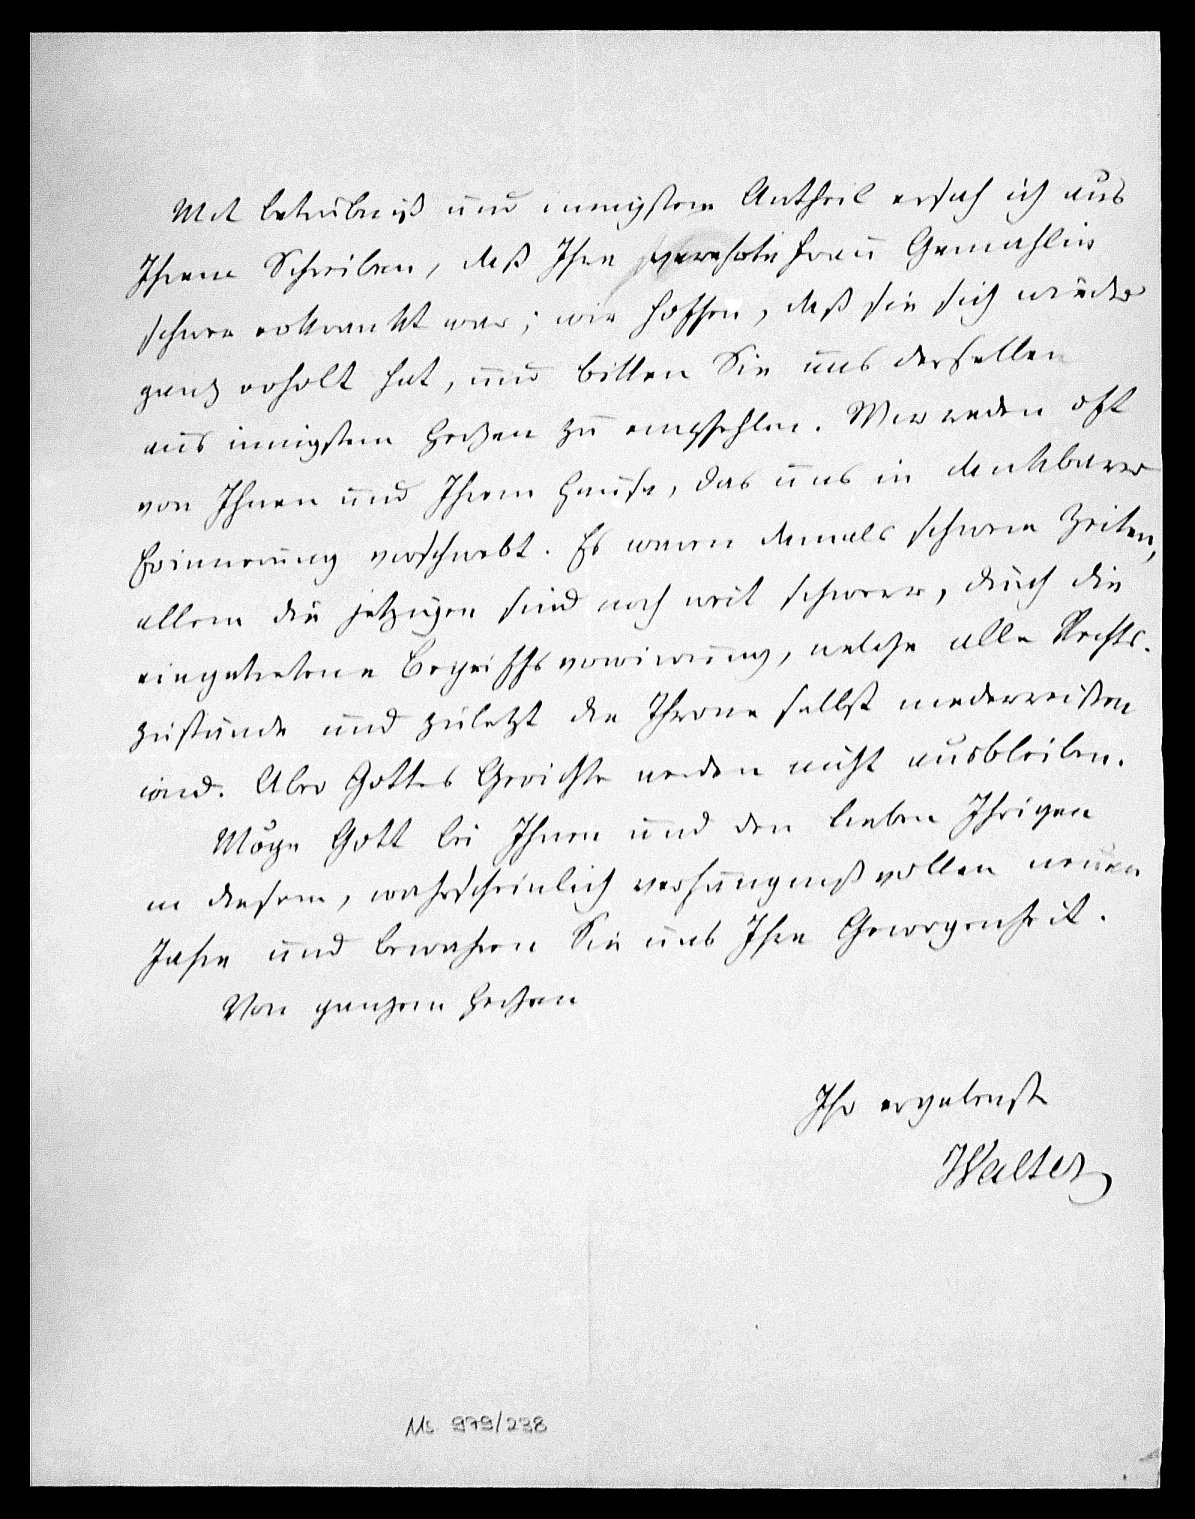 Mit betrübniß und innigstem Antheil ersah ich aus
Ihrem Schreiben, daß Ihre verehrte Frau Gemahlin
schwer erkrankt war; wir hoffen, daß sie sich wieder
ganz erholt hat, und bitten Sie uns derselben
aus innigstem Herzen zu empfehlen. Wir reden oft
von Ihnen und Ihrem Hause, das uns in dankbarer
Erinnerung vorschwebt. Es waren damals schwere Zeiten,
allein die jetzigen sind noch weit schwerer, durch die
eingetretene Begriffsverwirrung, welche alle Rechts-
zustände und zuletzt die Throne selbst niederreißen
wird. Aber Gottes Gerichte werden nicht ausbleiben.
Möge Gott bei Ihnen und den lieben Ihrigen
in diesem, wahrscheinlich verhängnißvollen neuen
Jahre und bewahren Sie uns Ihre Gewogenheit.
Von ganzem Herzen
Ihr ergebenste
Walter
Ms 979/238